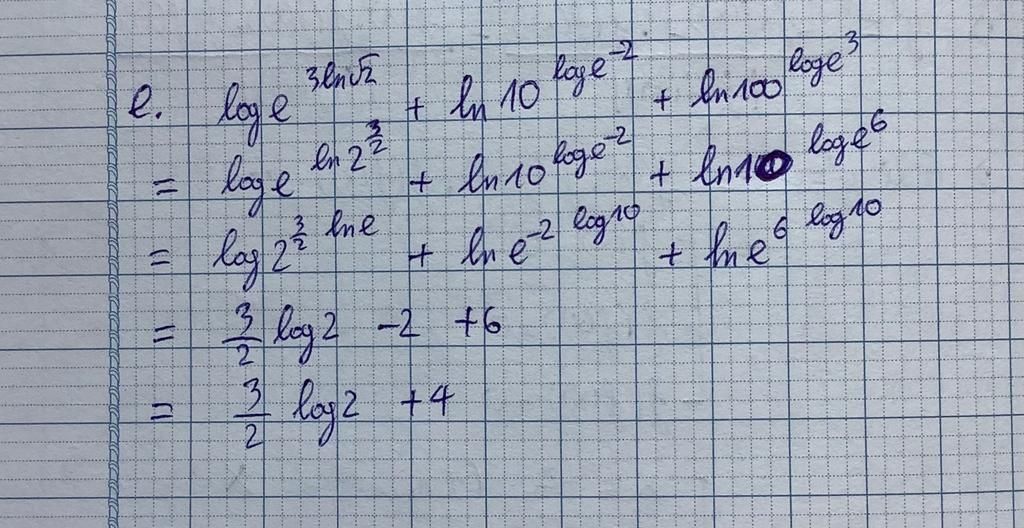 e. log e^{3ln√2} + ln 10^{log e^{-2}} + ln 100^{log e^3}
= log e^{ln 2^{3/2}} + ln 10^{log e^{-2}} + ln 10^{log e^6}
= log 2^{3/2 ln e} + ln e^{-2 log 10} + ln e^{6 log 10}
= 3/2 log 2 -2 +6
= 3/2 log 2 +4